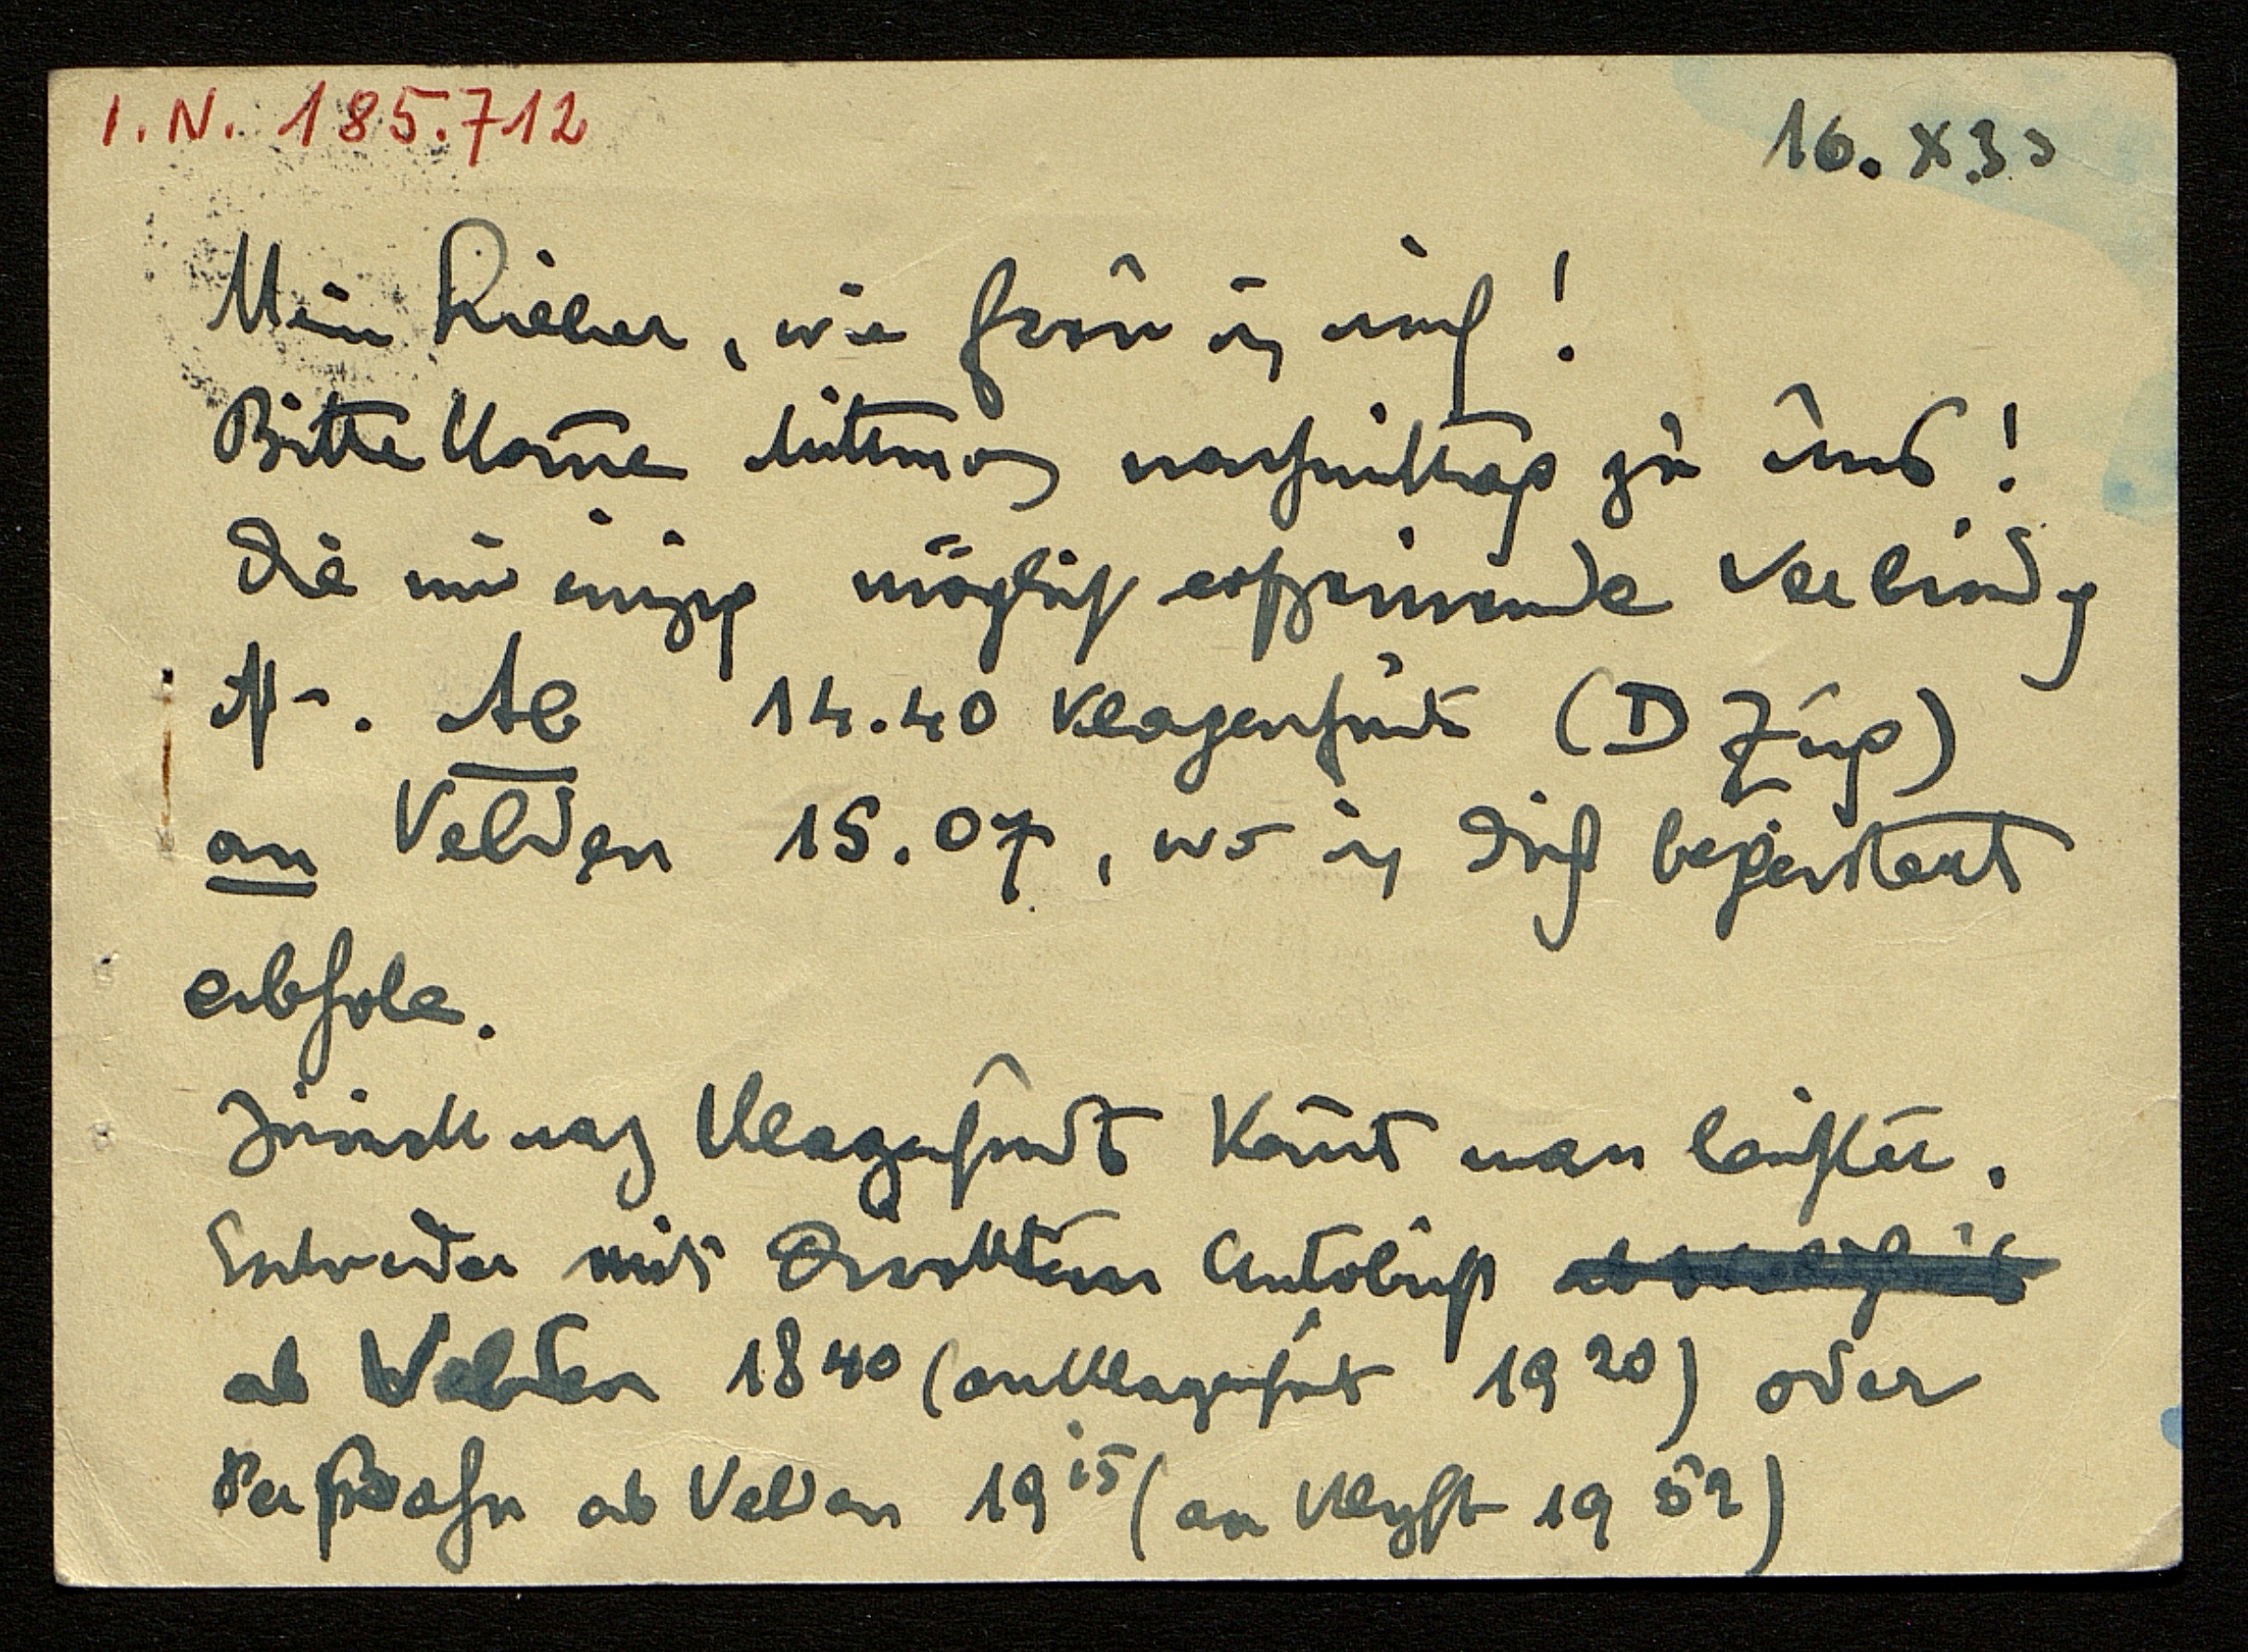 I.N. 185.712
16. X 33
Mein Lieber, wie freu ich mich!
Bitte kom̄e Mittwoch nachmittags zu uns!
Die mir einzig möglich erscheinende Verbindg
ist. Ab 14.40 Klagenfurt (D Zug)
an Velden 15.07, wo ich Dich begeistert
abhole.
Zurück nach Klagenfurt kom̄t man leichter.
Entweder mit direktem Autobus
ab Velden 18 40 (an Klagenfurt 19 20) oder
per Bahn ab Velden 19 15 (an Klgft 19 52)